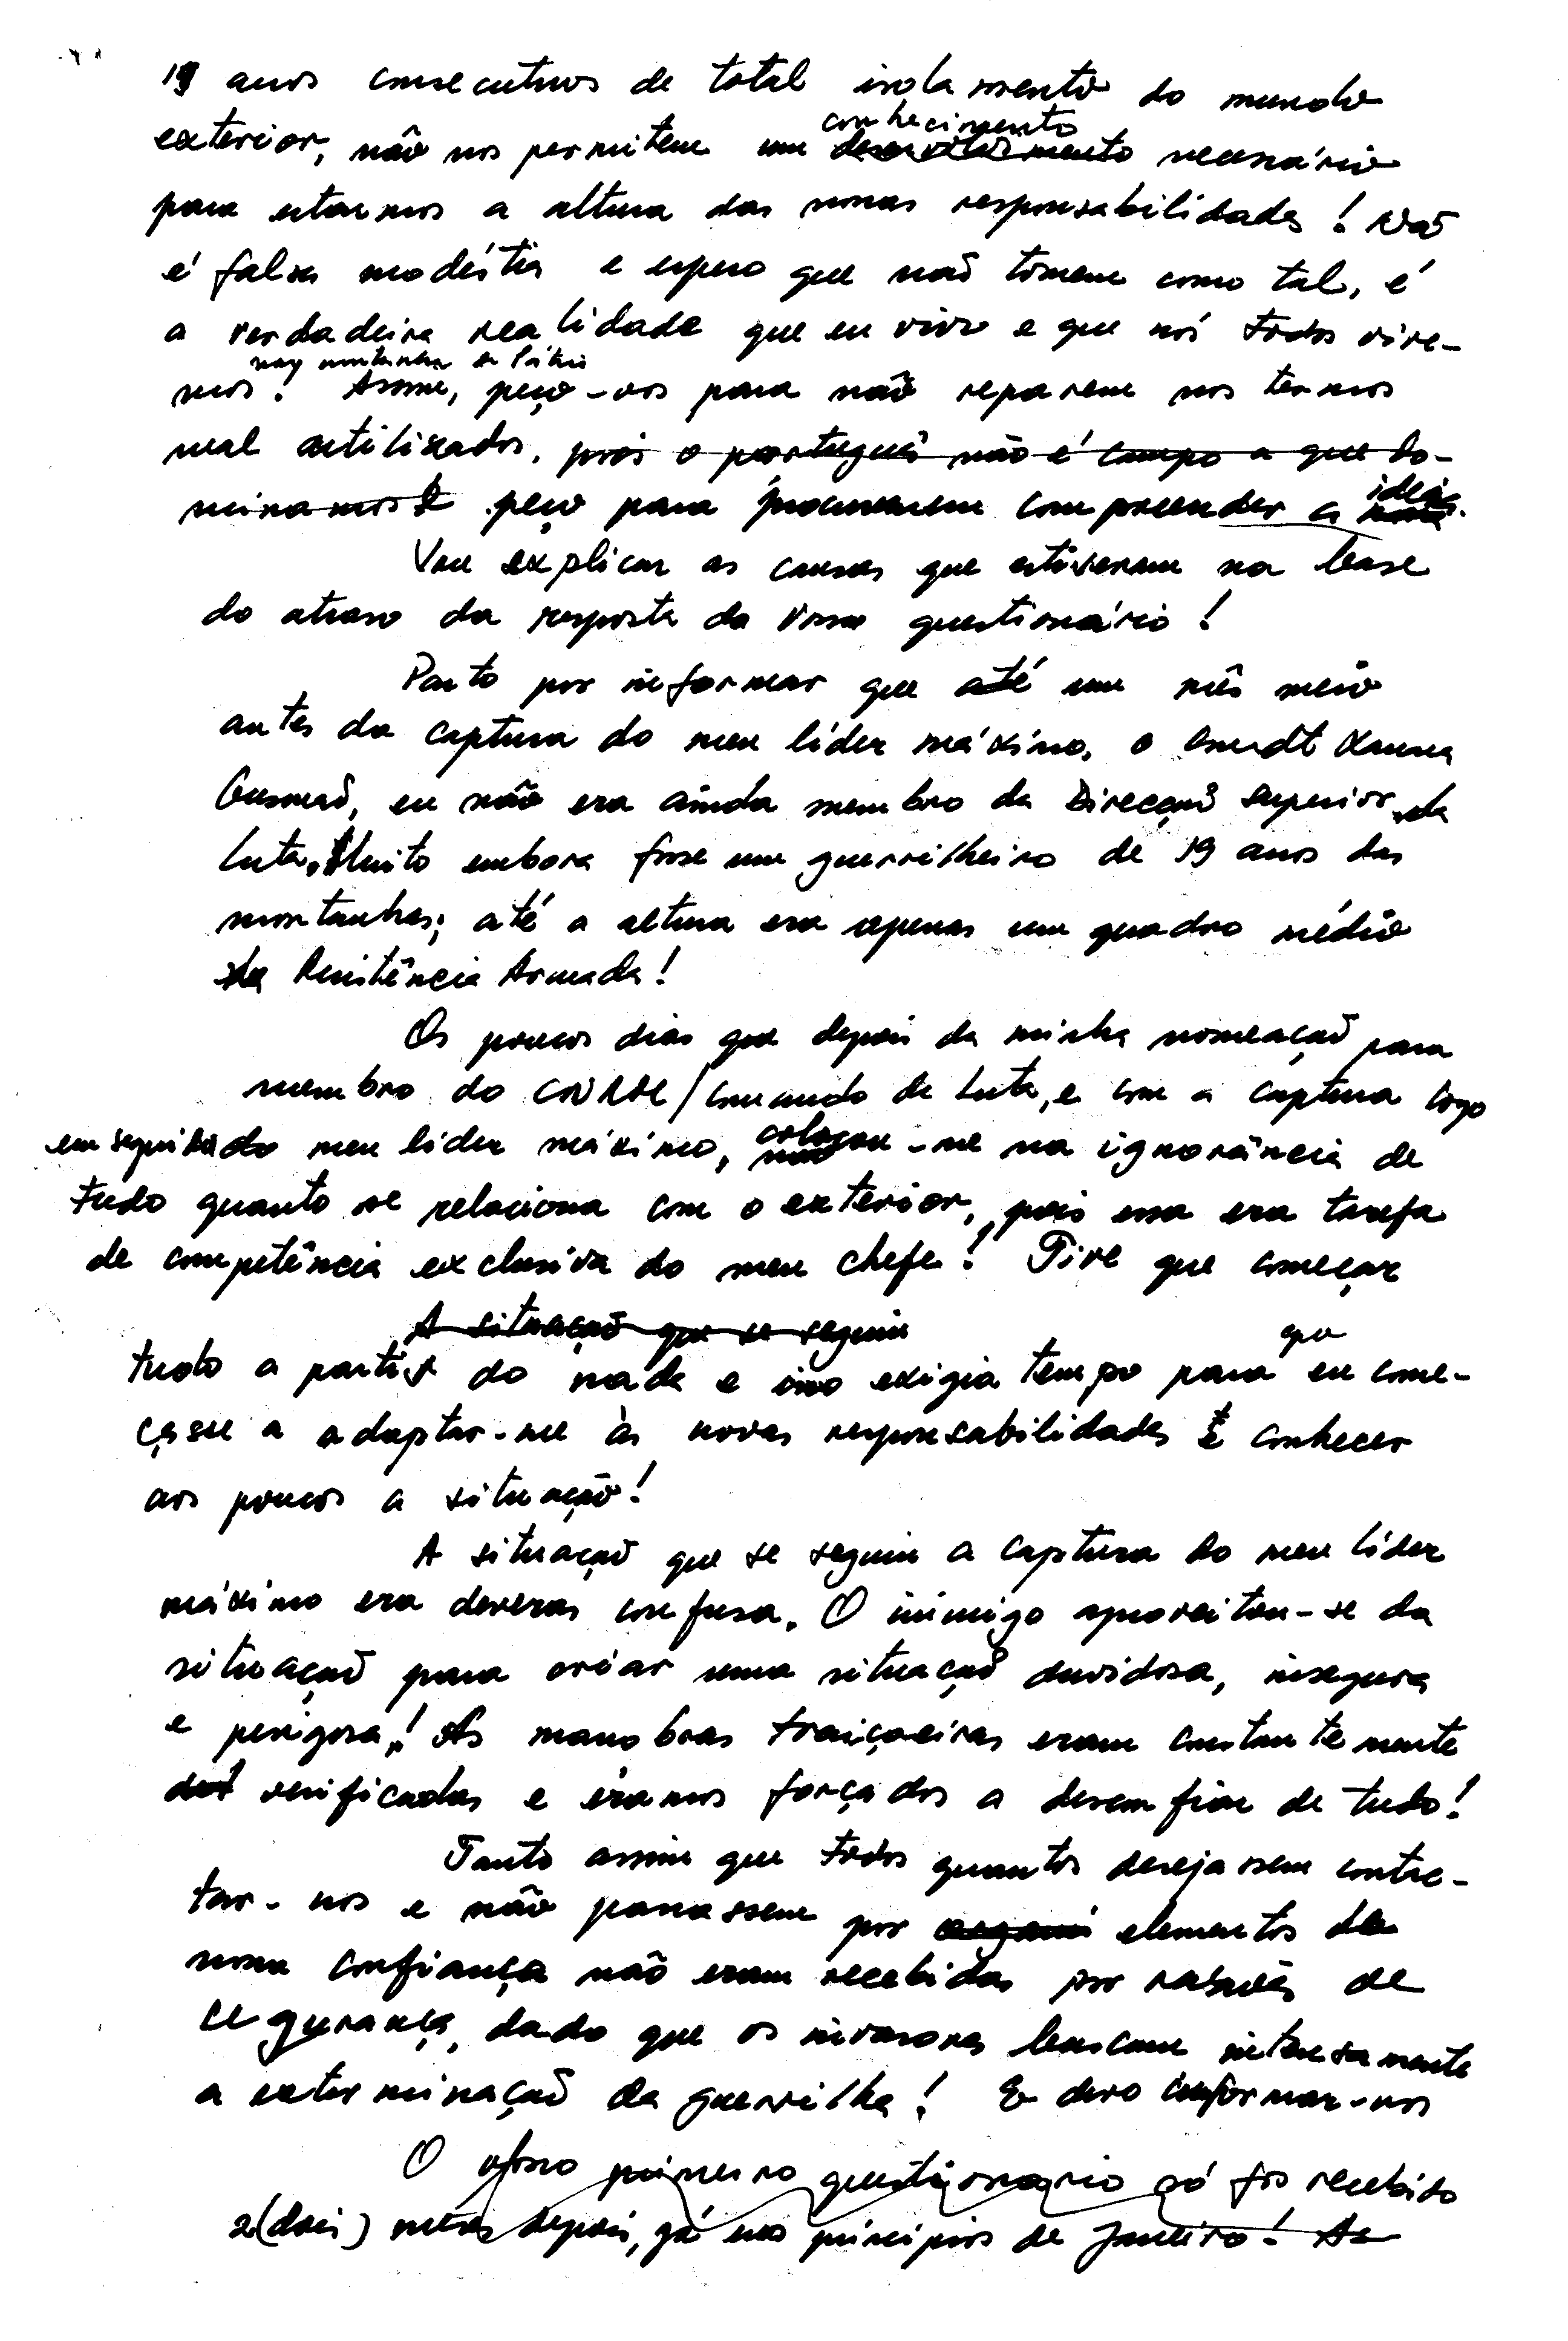 19 anos consecutivos de total isolamento do mundo
conhecimento
exterior, não nos permitem um desenvolvimento necessário
para estarmos a altura das nossas responsabilidades! Não
é falsa modéstia e espero que não tomem como tal, é
a verdadeira realidade que eu vivo e que nós todos vive-
nas montanhas da Pátria
mos! Assim, peço-vos para não reparem nos termos
mal utilizados, pois o português não é campo a que do-
ideia
minamos e peço para procurarem compreender a
Vou explicar as causas que estiveram na base
do atraso da resposta do vosso questionário!
Parto por informar que até um mês meio
antes da captura do meu líder máximo, o Cmdt Xanana
Gusmão, eu não era ainda membro da Direcção Superior da
Luta, Muito embora fosse um guerrilheiro de 19 anos das
montanhas; até a altura era apenas um quadro médio
da Resistência Armada!
Os poucos dias que depois da minha nomeação para
membro do CNRM/Comando de Luta, e com a captura logo
em seguida do meu líder máximo, colocou-me na ignorância de
tudo quanto se relaciona com o exterior, pois essa era tarefa
de competência exclusiva do meu chefe! Tive que começar
A situação que se seguiu
que
tudo a partir do nada e isso exigia tempo para eu come-
çasse a adaptar-me às novas responsabilidades e conhecer
aos poucos a situação!
A situação que se seguiu a captura do meu líder
máximo era deveras confusa. O inimigo aproveitou-se da
situação para criar uma situação duvidosa, insegura
e perigosa! As manobras traiçoeiras eram constantemente
verificadas e éramos forçados a desconfiar de tudo!
Tanto assim que todos quantos desejassem contac-
tar-nos e não passassem por elementos de
nossa confiança não eram recebidas por razões de
segurança, dado que os invasores buscam intensamente
a exterminação da guerrilha! E devo informar-vos
O vosso primeiro questionário só foi recebido
2(dois) meses depois, já nos princípios de Janeiro! As